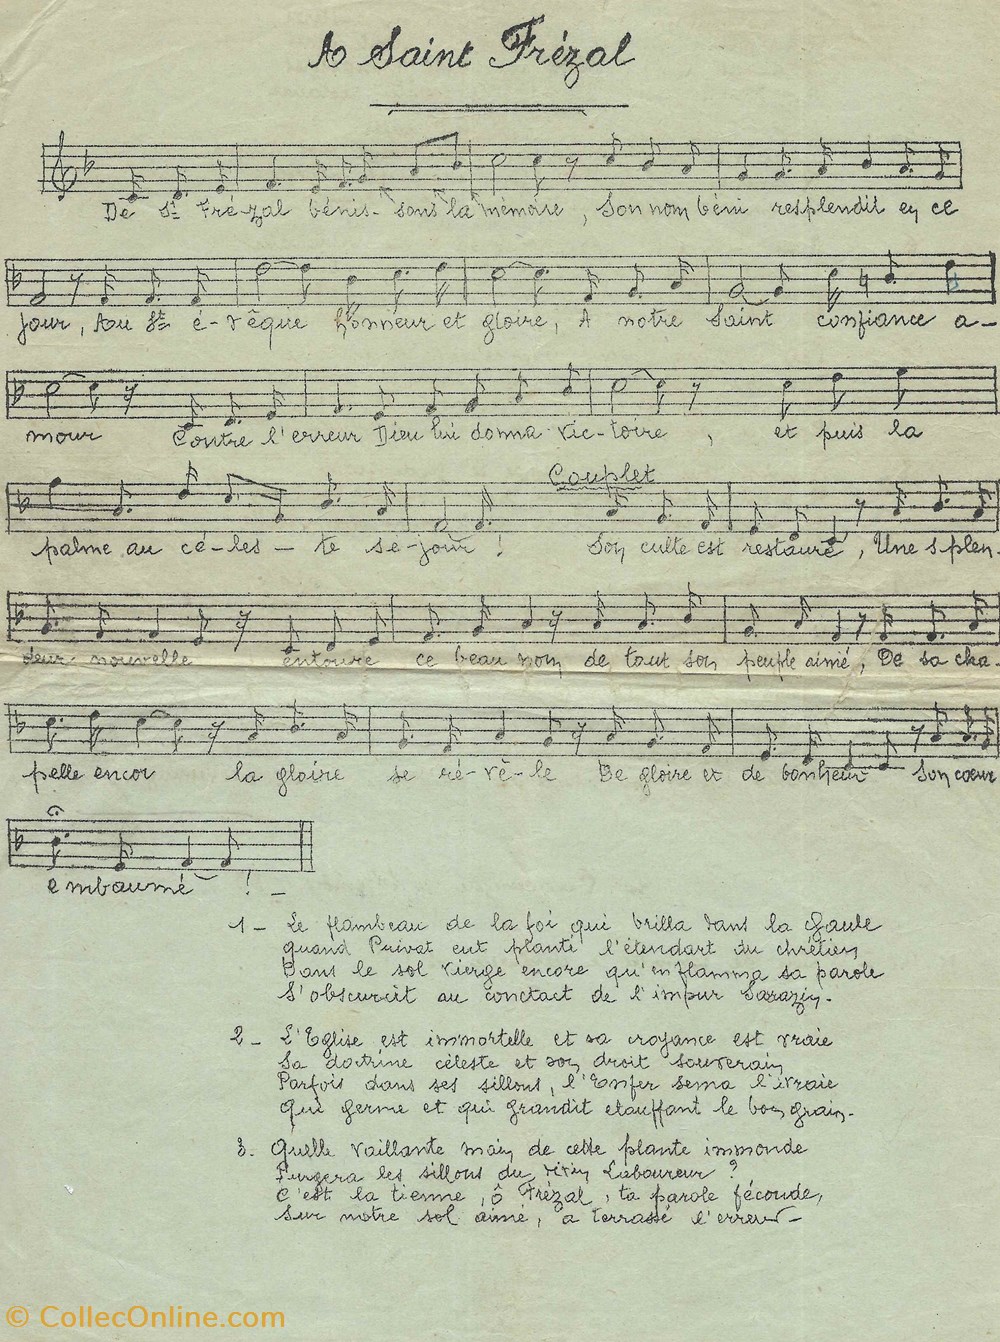 A Saint Frézal
De St Fré-zal bénis-sons la mémoire, Son nom béni resplendit en ce
jour, Au St é-vêque honneur et gloire, A notre Saint confiance a-
mour Contre l'erreur Dieu lui donna vic-toire, et puis la
Couplet
palme au cé-les-te sé-jour! Son culte est restauré, Une splen-
deur nouvelle entoure ce beau nom de tout son peuple aimé, De sa cha-
pelle encor la gloire se ré-vè-le De gloire et de bonheur Son cœur
embaumé !-
1- Le flambeau de la foi qui brilla dans la Gaule
quand Privat eut planté l'étendart du chrétien
Dans le sol vierge encore qu'enflamma sa parole
S'obscurcit au conctact de l'impur Sarazin.
2- L'Eglise est immortelle et sa croyance est vraie
Sa doctrine céleste et son droit souverain
Parfois dans ses sillons, l'Enfer sema l'ivraie
Qui germe et qui grandit etouffant le bon grain.
3. Quelle vaillante main de cette plante immonde
Purgera les sillons du divin Laboureur ?
C'est la tienne, ô Frézal, ta parole féconde,
Sur notre sol aimé, a terrassé l'erreur-
© CollecOnline.com